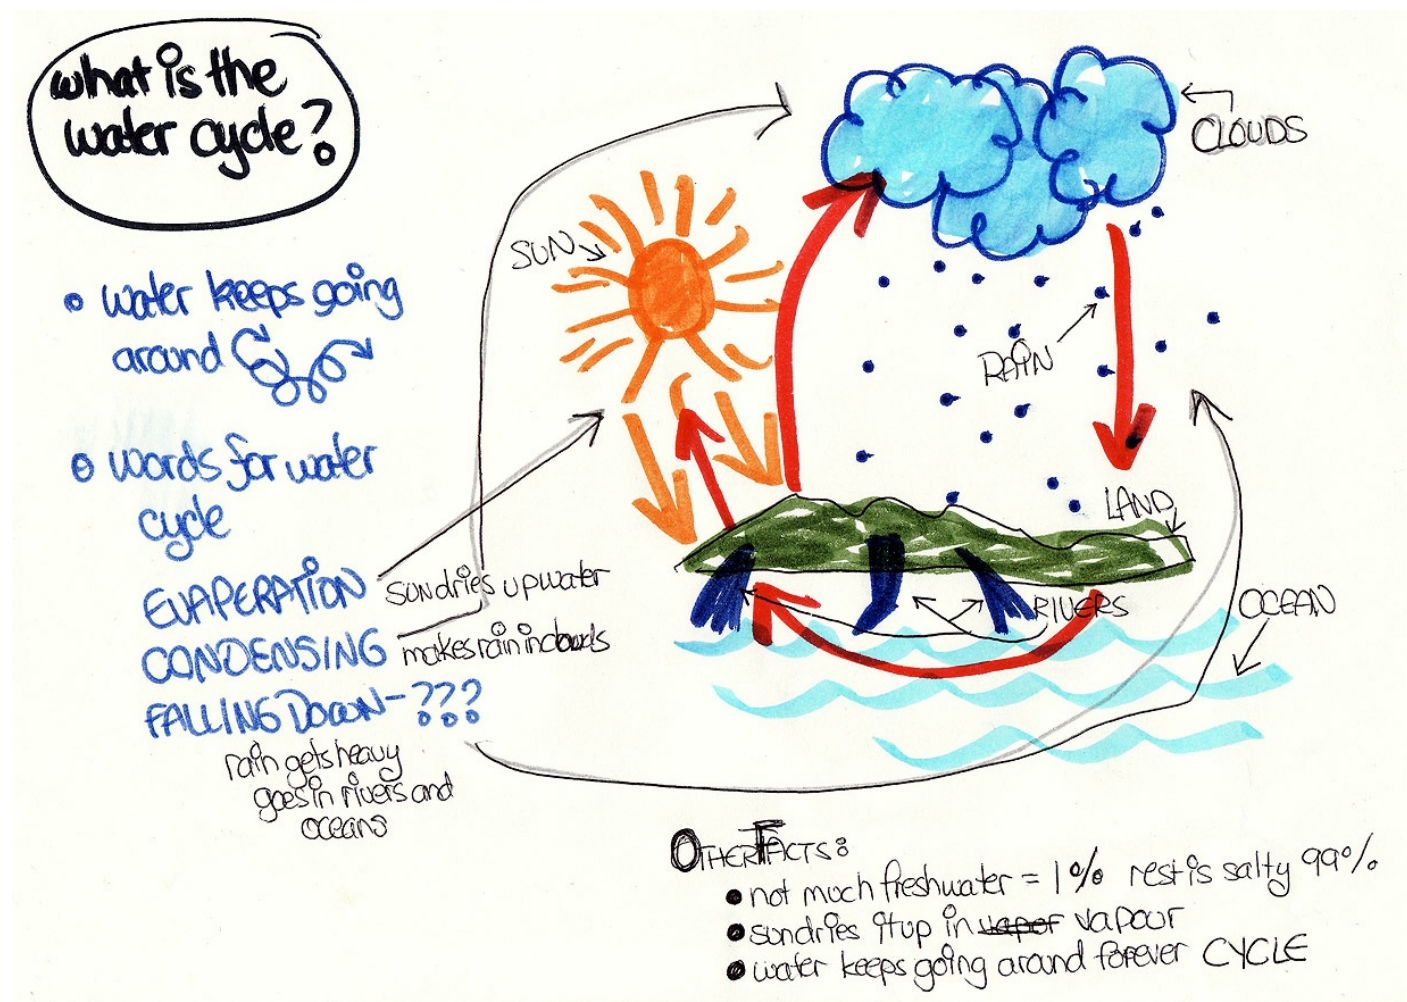 what is the
water cycle?
• water keeps going
around
• words for water
cycle
EVAPERATION
sun dries up water
CONDENSING
makes rain in clouds
FALLING DOWN - ???
rain gets heavy
goes in rivers and
oceans
SUN
CLOUDS
RAIN
LAND
RIVERS
OCEAN
OTHER FACTS:
• not much freshwater = 1% rest is salty 99%
• sun dries it up in vapor vapour
• water keeps going around forever CYCLE